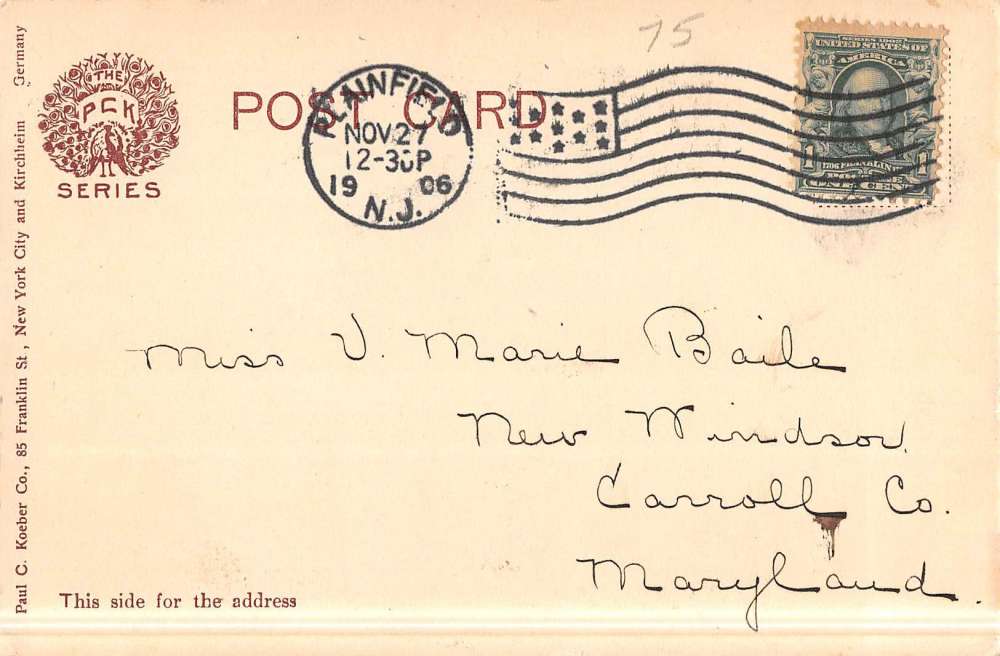 75
POST CARD
THE
PCK
SERIES
PLAINFIELD
NOV 27
12-30P
1906
N.J.
SERIES 1902
UNITED STATES OF
AMERICA
1 1
FRANKLIN
ONE CENT
Miss V. Marie Baile
New Windsor
Carroll Co.
Maryland.
This side for the address
Paul C. Koeber Co., 85 Franklin St., New York City and Kirchheim Germany